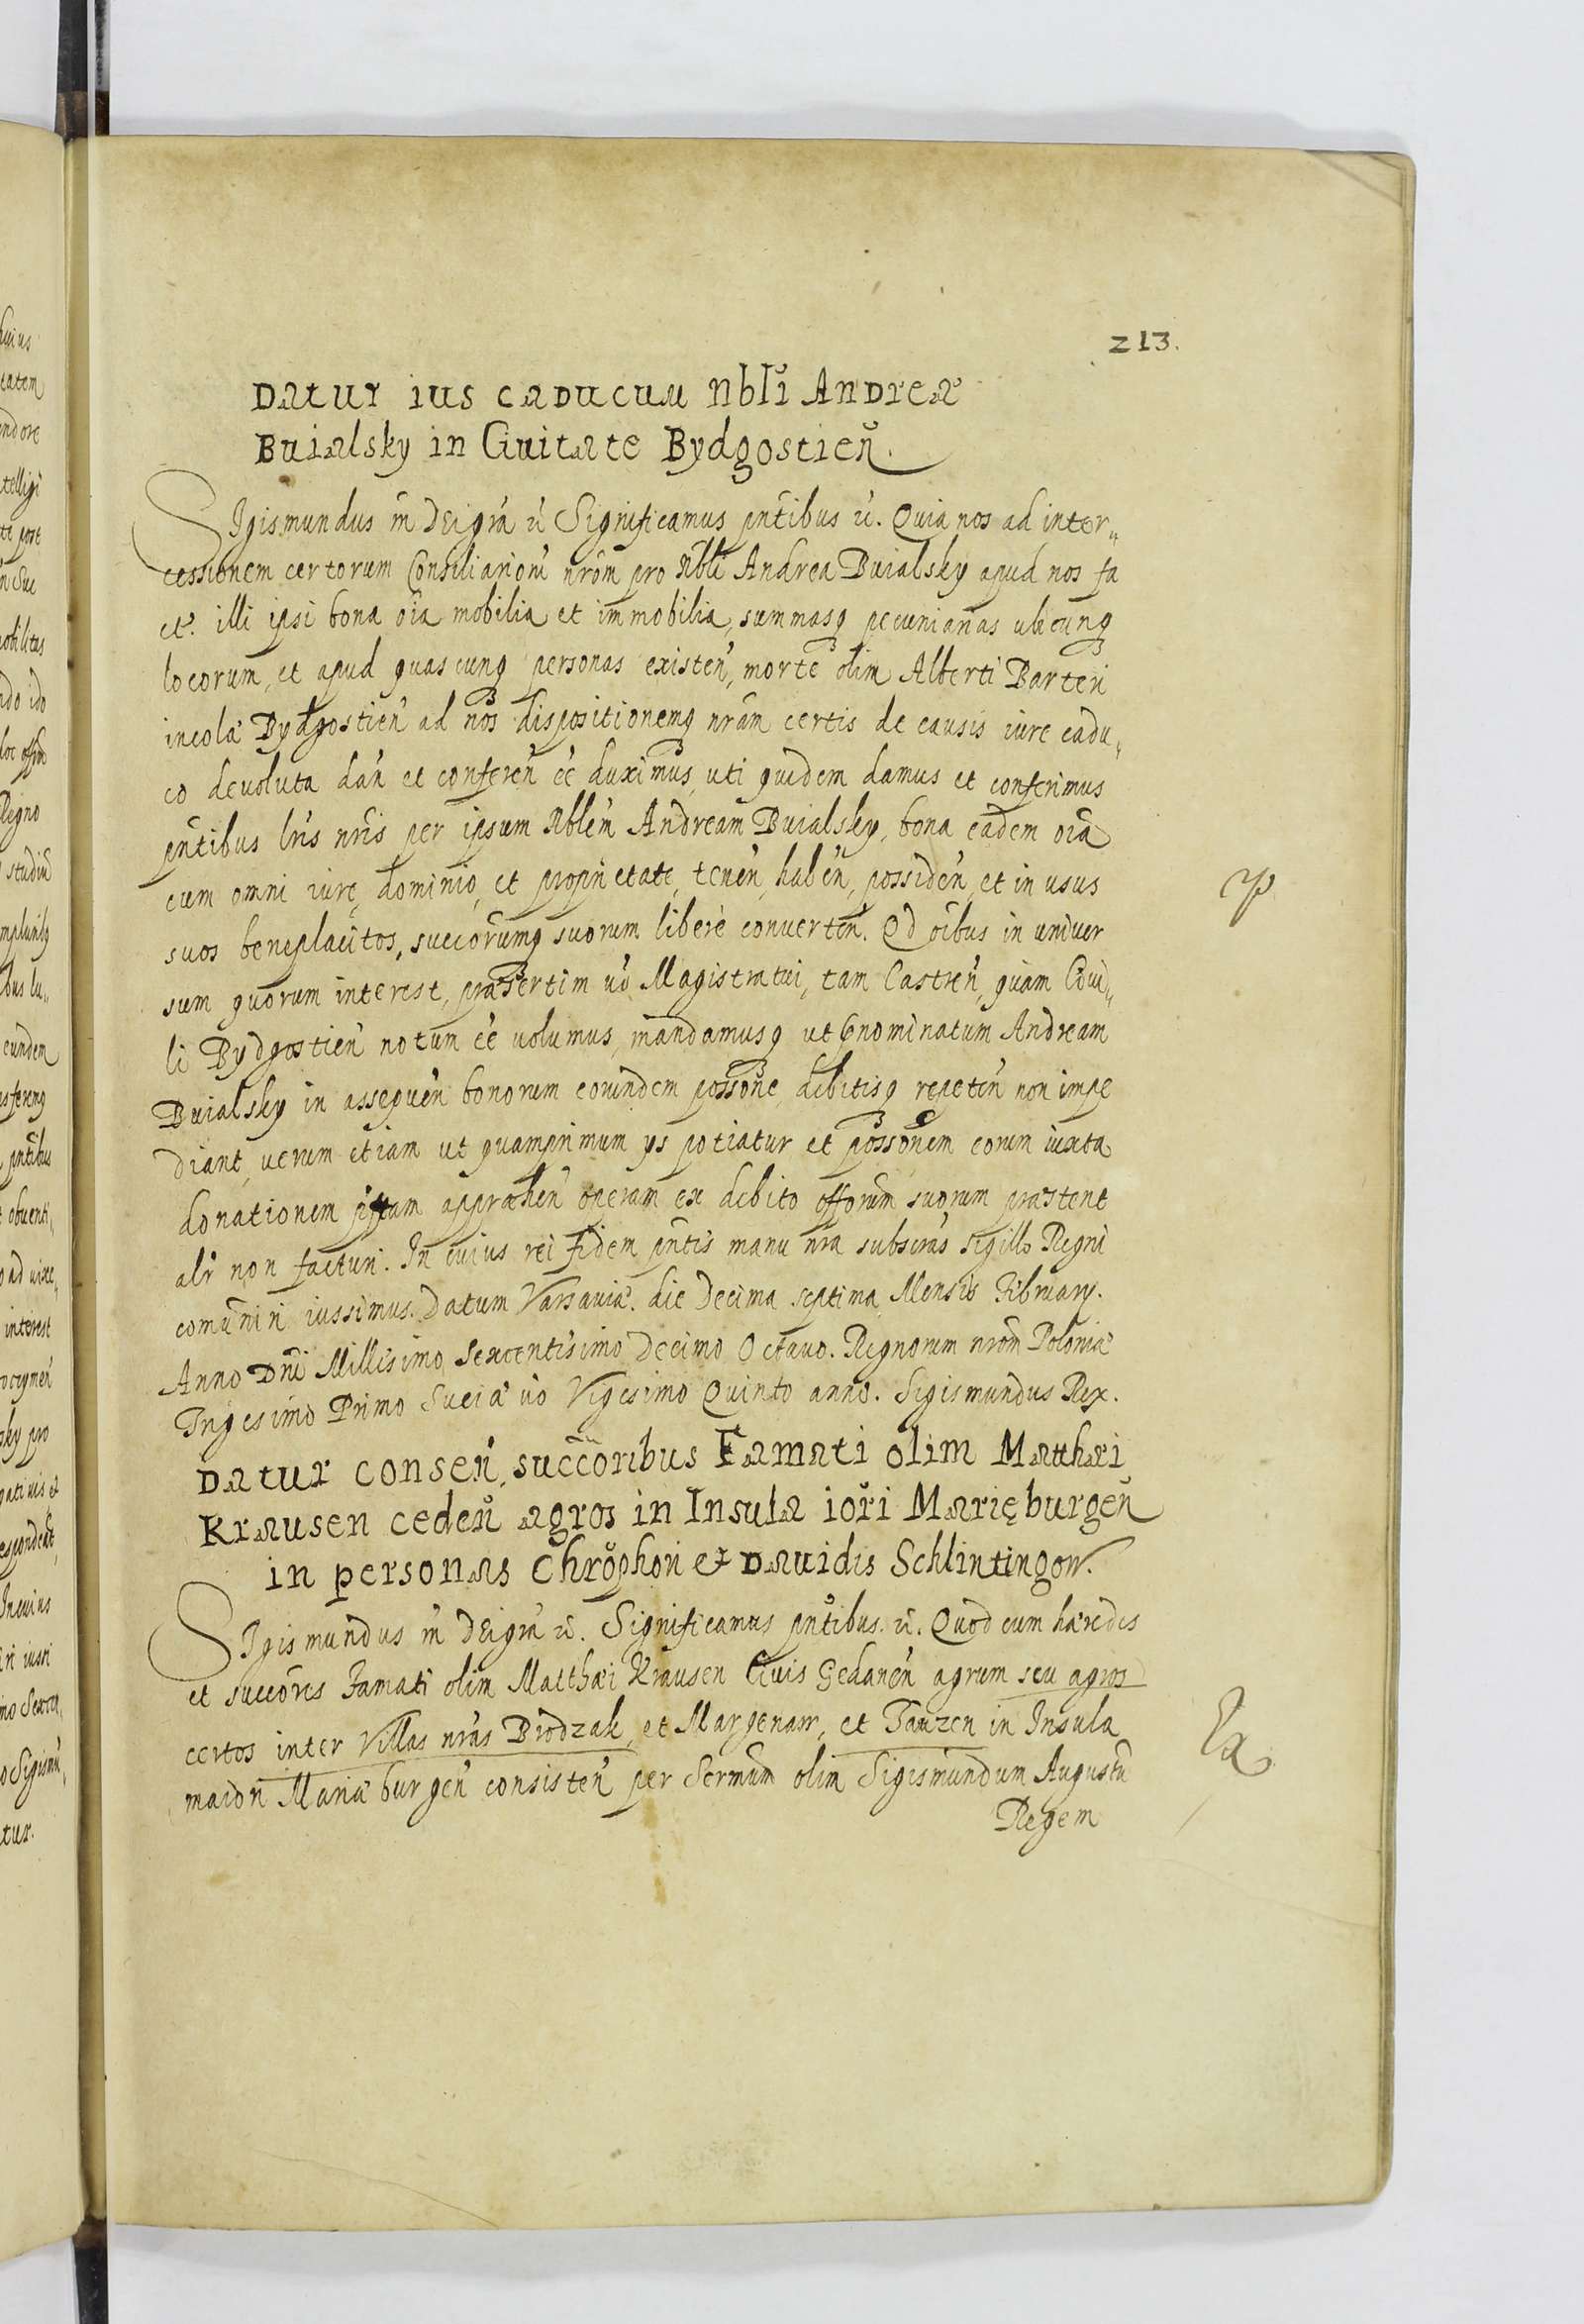 213.
Datur ius caducum Nbli Andreæ
Buialsky in Ciuitate Bydgostien̄.
Sigismundus m DEi gra̅ zc̅ Significamus pn̅tibus zc̅. Quia nos ad inter„
cessionem certorum Consiliarioru̅ nro̅m pro Nbli Andrea Buialsky apud nos fa
ct. illi ipsi bona oi̅a mobilia et immobilia, summasq pecuniarias ubicunq
locorum, et apud quascunq personas existen̄, morte olim Alberti Barteri
incolæ Bydgostien̄ ad nos dispositionemq nra̅m certis de causis iure cadu„
co deuoluta dan̄ et conferen̄ e̅e duximus, uti quidem damus et conferimus
pn̅tibus lr̅is nr̅is per ipsum Nble̅m Andream Buialsky, bona eadem oi̅a
cum omni iure, dominio, et proprietate, tenen̄, haben̄, possiden̄, et in usus
suos beneplacitos, succo̅rumq suorum liberè conuerten̄. Qd oi̅bus in uniuer
sum quorum interest, præsertim uo̅ Magistratui, tam Castren̄, quam Ciui„
li Bydgostien̄ notum e̅e uolumus, mandamusq ut prænominatum Andream
Buialsky in assequen̄ bonorum eorundem posso̅ne, debitisq repeten̄ non impe
diant, uerum etiam ut quamprimum ys potiatur et posso̅nem eorum iuxta
donationem istam appræhen̄ operam ex debito offo̅rum suorum præstent
alr̅ non facturi. In cuius rei fidem pn̅tis manu nra̅ subscras̅ sigillo Regni
comuniri iussimus. Datum Varsauiæ. die Decima septima Mensis February.
Anno Dni̅ Millesimo Sexcentesimo Decimo Octauo. Regnorum nro̅m Poloniæ
Trigesimo Primo Sueciæ uo̅ Vigesimo Quinto anno. Sigismundus Rex.
Datur consen̄ succo̅ribus Famati olim Matthæi
Krausen ceden̄ agros in Insula io̅ri Marięburgen̄
in personas Chro̅phori et Dauidis Schlintingow.
Sigismundus m DEi gra̅ zc̅. Significamus pn̅tibus. zc̅. Quod cum hæredes
et succo̅res Famati olim Matthæi Krausen Ciuis Gedanen̄ agrum seu agros
certos inter Villas nra̅s Brodzak, et Margenaw, et Tanzen in Insula
maiori Mariæburgen̄ consisten̄ per Sermu̅m olim Sigismundum Augustu̅
Regem